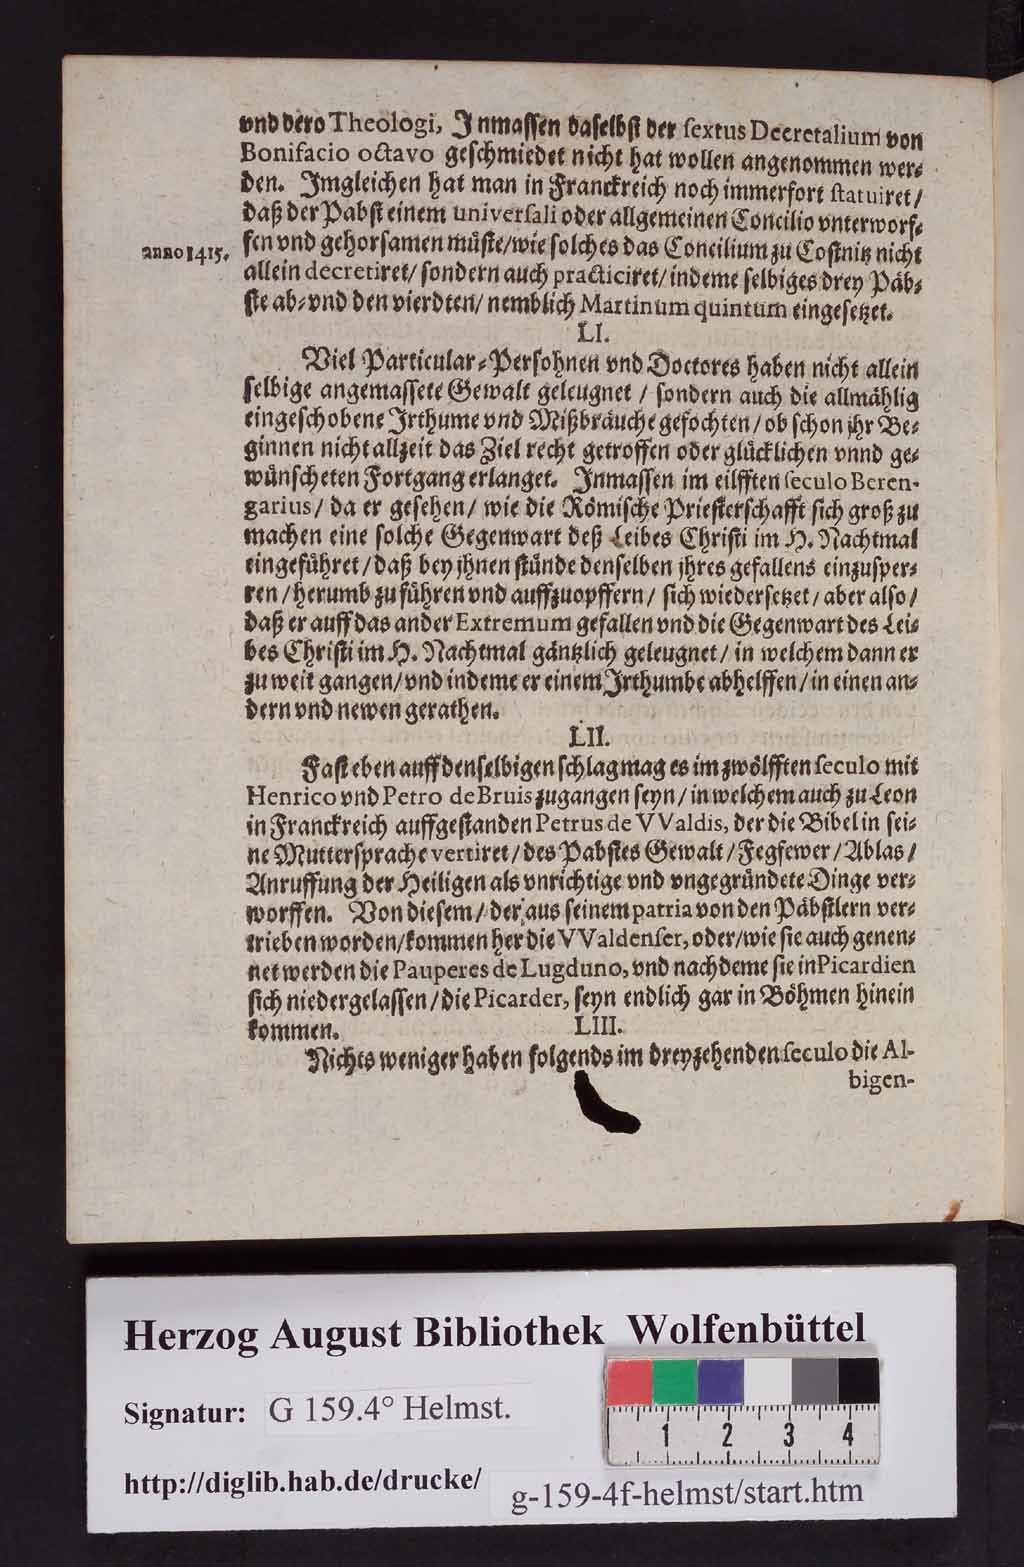 vnd dero Theologi, Inmassen daselbst der sextus Decretalium von
Bonifacio octavo geschmiedet nicht hat wollen angenommen wer-
den. Imgleichen hat man in Franckreich noch immerfort statuiret/
daß der Pabst einem universali oder allgemeinen Concilio vnterworf-
fen vnd gehorsamen müste/wie solches das Concilium zu Costnitz nicht
anno 1415.
allein decretiret/ sondern auch practiciret/ indeme selbiges drey Päb-
ste ab-vnd den vierdten/ nemblich Martinum quintum eingesetzet.
LI.
Viel Particular-Persohnen vnd Doctores haben nicht allein
selbige angemassete Gewalt geleugnet / sondern auch die allmählig
eingeschobene Irthume vnd Mißbräuche gefochten/ ob schon jhr Be-
ginnen nicht allzeit das Ziel recht getroffen oder glücklichen vnnd ge-
wünscheten Fortgang erlanget. Inmassen im eilfften seculo Beren-
garius/ da er gesehen/ wie die Römische Priesterschafft sich groß zu
machen eine solche Gegenwart deß Leibes Christi im H. Nachtmal
eingeführet/ daß bey jhnen stünde denselben jhres gefallens einzusper-
ren/ herumb zu führen vnd auffzuopffern/ sich wiedersetzet/ aber also/
daß er auff das ander Extremum gefallen vnd die Gegenwart des Lei-
bes Christi im H. Nachtmal gäntzlich geleugnet/ in welchem dann er
zu weit gangen/ vnd indeme er einem Irthumbe abhelffen/ in einen an-
dern vnd newen gerathen.
LII.
Fast eben auff denselbigen schlag mag es im zwölfften seculo mit
Henrico vnd Petro de Bruis zugangen seyn/ in welchem auch zu Leon
in Franckreich auffgestanden Petrus de VValdis, der die Bibel in sei-
ne Muttersprache vertiret/ des Pabstes Gewalt/ Fegfewer/ Ablas/
Anruffung der Heiligen als vnrichtige vnd vngegründete Dinge ver-
worffen. Von diesem/ der aus seinem patria von den Päbstlern ver-
trieben worden/kommen her die VValdenser, oder/wie sie auch genen-
net werden die Pauperes de Lugduno, vnd nachdeme sie in Picardien
sich niedergelassen/ die Picarder, seyn endlich gar in Böhmen hinein
kommen.
LIII.
Nichts weniger haben folgends im dreyzehenden seculo die Al-
bigen-
Herzog August Bibliothek Wolfenbüttel
Signatur: G 159.4° Helmst.
1 2 3 4
http://diglib.hab.de/drucke/ g-159-4f-helmst/start.htm